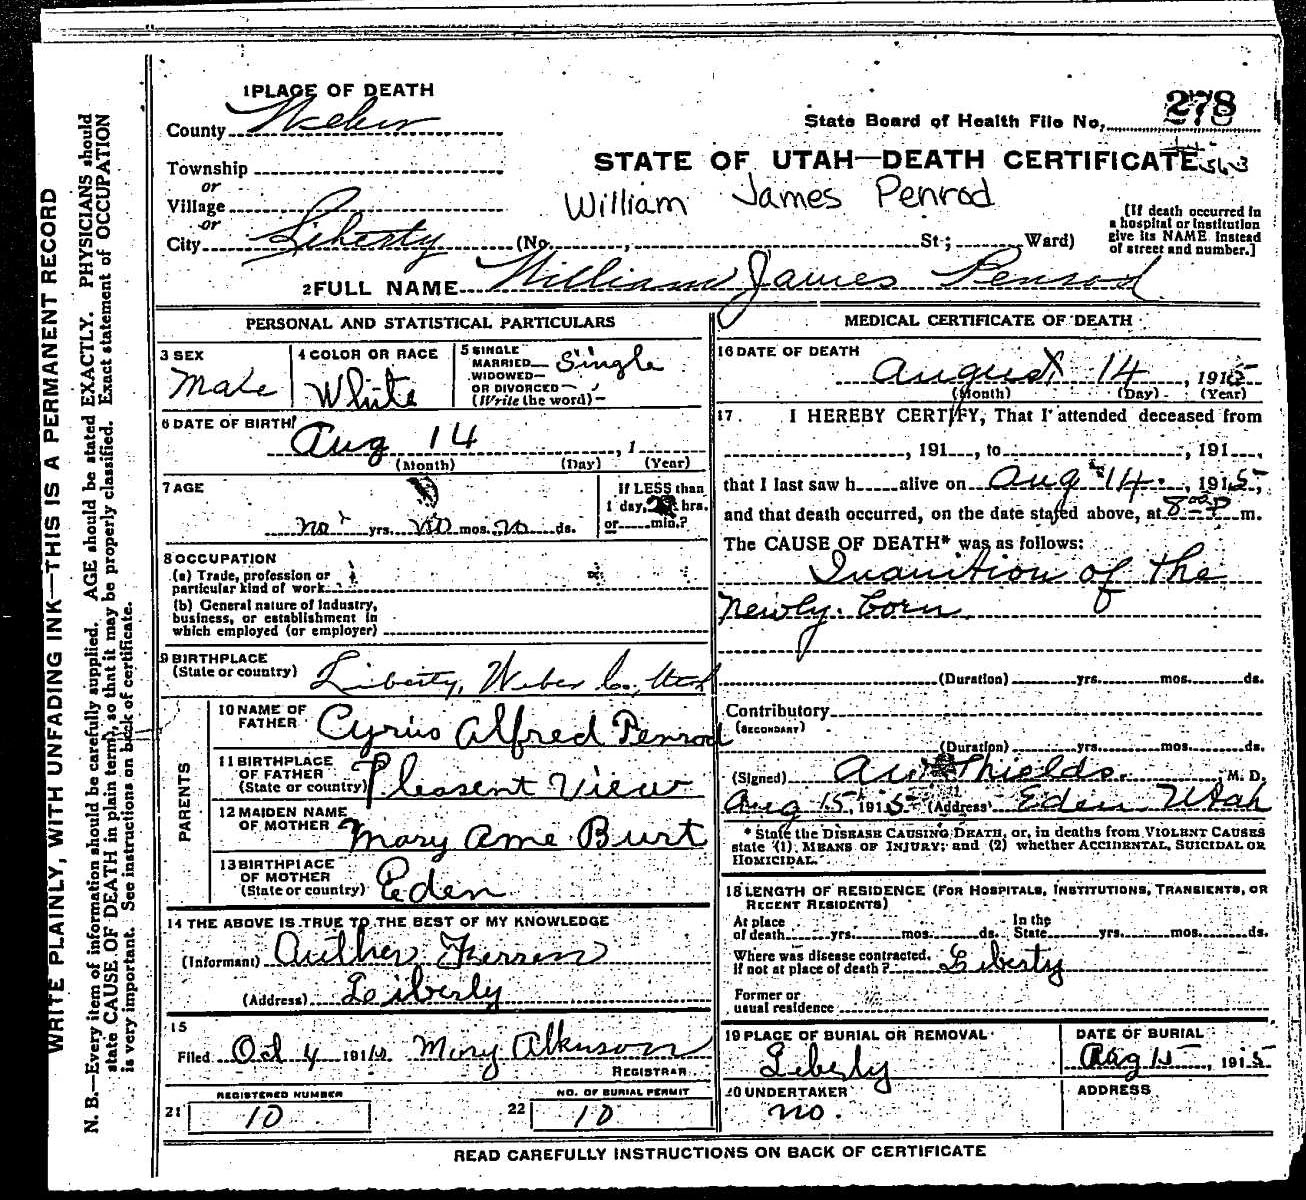 1 PLACE OF DEATH
278
County Weber
State Board of Health File No.
Township
STATE OF UTAH—DEATH CERTIFICATE
or
Village
William James Penrod
or
City Liberty (No. , St; Ward)
[If death occurred in
a hospital or institution
give its NAME instead
of street and number.]
2 FULL NAME William James Penrod
PERSONAL AND STATISTICAL PARTICULARS
3 SEX
Male
4 COLOR OR RACE
White
5 SINGLE
MARRIED
WIDOWED
OR DIVORCED
(Write the word)
Single
6 DATE OF BIRTH
Aug 14 , 1
(Month) (Day) (Year)
7 AGE
no yrs. no mos. no ds.
If LESS than
1 day, hrs.
or min.?
8 OCCUPATION
(a) Trade, profession or
particular kind of work
(b) General nature of industry,
business, or establishment in
which employed (or employer)
9 BIRTHPLACE
(State or country) Liberty, Weber Co., Utah
PARENTS
10 NAME OF
FATHER Cyrus Alfred Penrod
11 BIRTHPLACE
OF FATHER
(State or country) Pleasent View
12 MAIDEN NAME
OF MOTHER Mary Ame Burt
13 BIRTHPLACE
OF MOTHER
(State or country) Eden
14 THE ABOVE IS TRUE TO THE BEST OF MY KNOWLEDGE
(Informant) Auther
(Address) Liberty
15
Filed Oct 4 191 Mary Atkinson
REGISTRAR
REGISTERED NUMBER
21 10
NO. OF BURIAL PERMIT
22 10
MEDICAL CERTIFICATE OF DEATH
16 DATE OF DEATH
August 14 , 1915
(Month) (Day) (Year)
17 I HEREBY CERTIFY, That I attended deceased from
, 191 , to , 191 ,
that I last saw h alive on Aug 14 , 1915,
and that death occurred, on the date stated above, at 8 00 P m.
The CAUSE OF DEATH* was as follows:
Inanition of the
newly born
(Duration) yrs. mos. ds.
Contributory
(SECONDARY)
(Duration) yrs. mos. ds.
(Signed) Shields , M. D.
Aug 15 1915 (Address) Eden Utah
* State the DISEASE CAUSING DEATH, or, in deaths from VIOLENT CAUSES
state (1) MEANS OF INJURY; and (2) whether ACCIDENTAL, SUICIDAL OR
HOMICIDAL.
18 LENGTH OF RESIDENCE (FOR HOSPITALS, INSTITUTIONS, TRANSIENTS, OR
RECENT RESIDENTS)
At place
of death yrs. mos. ds. In the
State yrs. mos. ds.
Where was disease contracted,
if not at place of death? Liberty
Former or
usual residence
19 PLACE OF BURIAL OR REMOVAL
Liberty
DATE OF BURIAL
Aug 15 , 1915
20 UNDERTAKER
no.
ADDRESS
READ CAREFULLY INSTRUCTIONS ON BACK OF CERTIFICATE
WRITE PLAINLY, WITH UNFADING INK—THIS IS A PERMANENT RECORD
N. B.—Every item of information should be carefully supplied. AGE should be stated EXACTLY. PHYSICIANS should
state CAUSE OF DEATH in plain terms, so that it may be properly classified. Exact statement of OCCUPATION
is very important. See instructions on back of certificate.